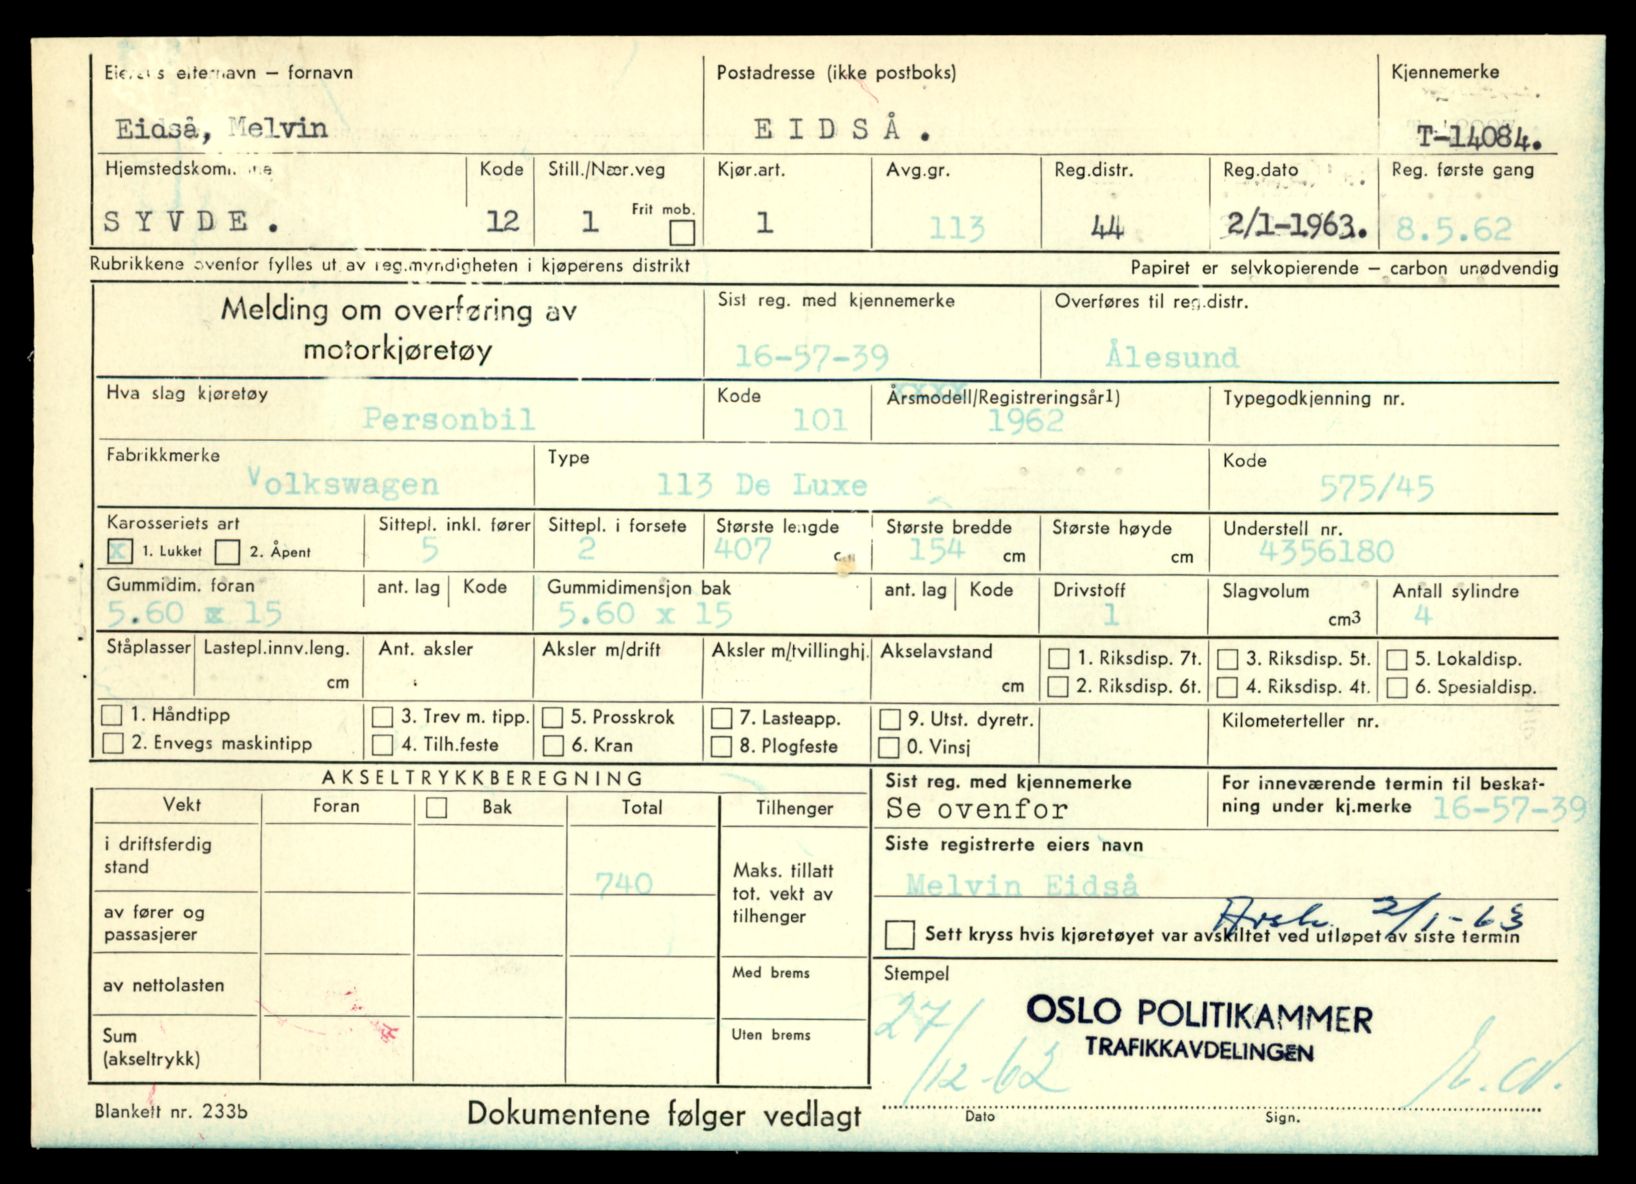 Eierens etternavn – fornavn
Postadresse (ikke postboks)
Kjennemerke
Eidså, Melvin
EIDSÅ.
T-14084.
Hjemstedskommune
Kode
Still./Nær.veg
Kjør.art.
Avg.gr.
Reg.distr.
Reg.dato
Reg. første gang
SYVDE.
12
1
Frit mob.
1
113
44
2/1-1963.
8.5.62
Rubrikkene ovenfor fylles ut av reg.myndigheten i kjøperens distrikt
Papiret er selvkopierende – carbon unødvendig
Melding om overføring av
motorkjøretøy
Sist reg. med kjennemerke
Overføres til reg.distr.
16-57-39
Ålesund
Hva slag kjøretøy
Kode
Årsmodell/Registreringsår1)
xxxx
Typegodkjenning nr.
Personbil
101
1962
Fabrikkmerke
Type
Kode
Volkswagen
113 De Luxe
575/45
Karosseriets art
Sittepl. inkl. fører
Sittepl. i forsete
Største lengde
Største bredde
Største høyde
Understell nr.
x 1. Lukket
2. Åpent
5
2
407 cm
154 cm
cm
4356180
Gummidim. foran
ant. lag
Kode
Gummidimensjon bak
ant. lag
Kode
Drivstoff
Slagvolum
Antall sylindre
5.60 x 15
5.60 x 15
1
cm3
4
Ståplasser
Lastepl.innv.leng.
Ant. aksler
Aksler m/drift
Aksler m/tvillinghj.
Akselavstand
1. Riksdisp. 7t.
3. Riksdisp. 5t.
5. Lokaldisp.
cm
cm
2. Riksdisp. 6t.
4. Riksdisp. 4t.
6. Spesialdisp.
1. Håndtipp
3. Trev m. tipp.
5. Prosskrok
7. Lasteapp.
9. Utst. dyretr.
Kilometerteller nr.
2. Envegs maskintipp
4. Tilh.feste
6. Kran
8. Plogfeste
0. Vinsj
AKSELTRYKKBEREGNING
Sist reg. med kjennemerke
For inneværende termin til beskat-
ning under kj.merke 16-57-39
Vekt
Foran
Bak
Total
Tilhenger
Se ovenfor
i driftsferdig
stand
740
Maks. tillatt
tot. vekt av
tilhenger
Siste registrerte eiers navn
Melvin Eidså
av fører og
passasjerer
2/1-63
Sett kryss hvis kjøretøyet var avskiltet ved utløpet av siste termin
av nettolasten
Med brems
Stempel
27/12-62
OSLO POLITIKAMMER
TRAFIKKAVDELINGEN
Sum
(akseltrykk)
Uten brems
Blankett nr. 233b
Dokumentene følger vedlagt
Dato
Sign.